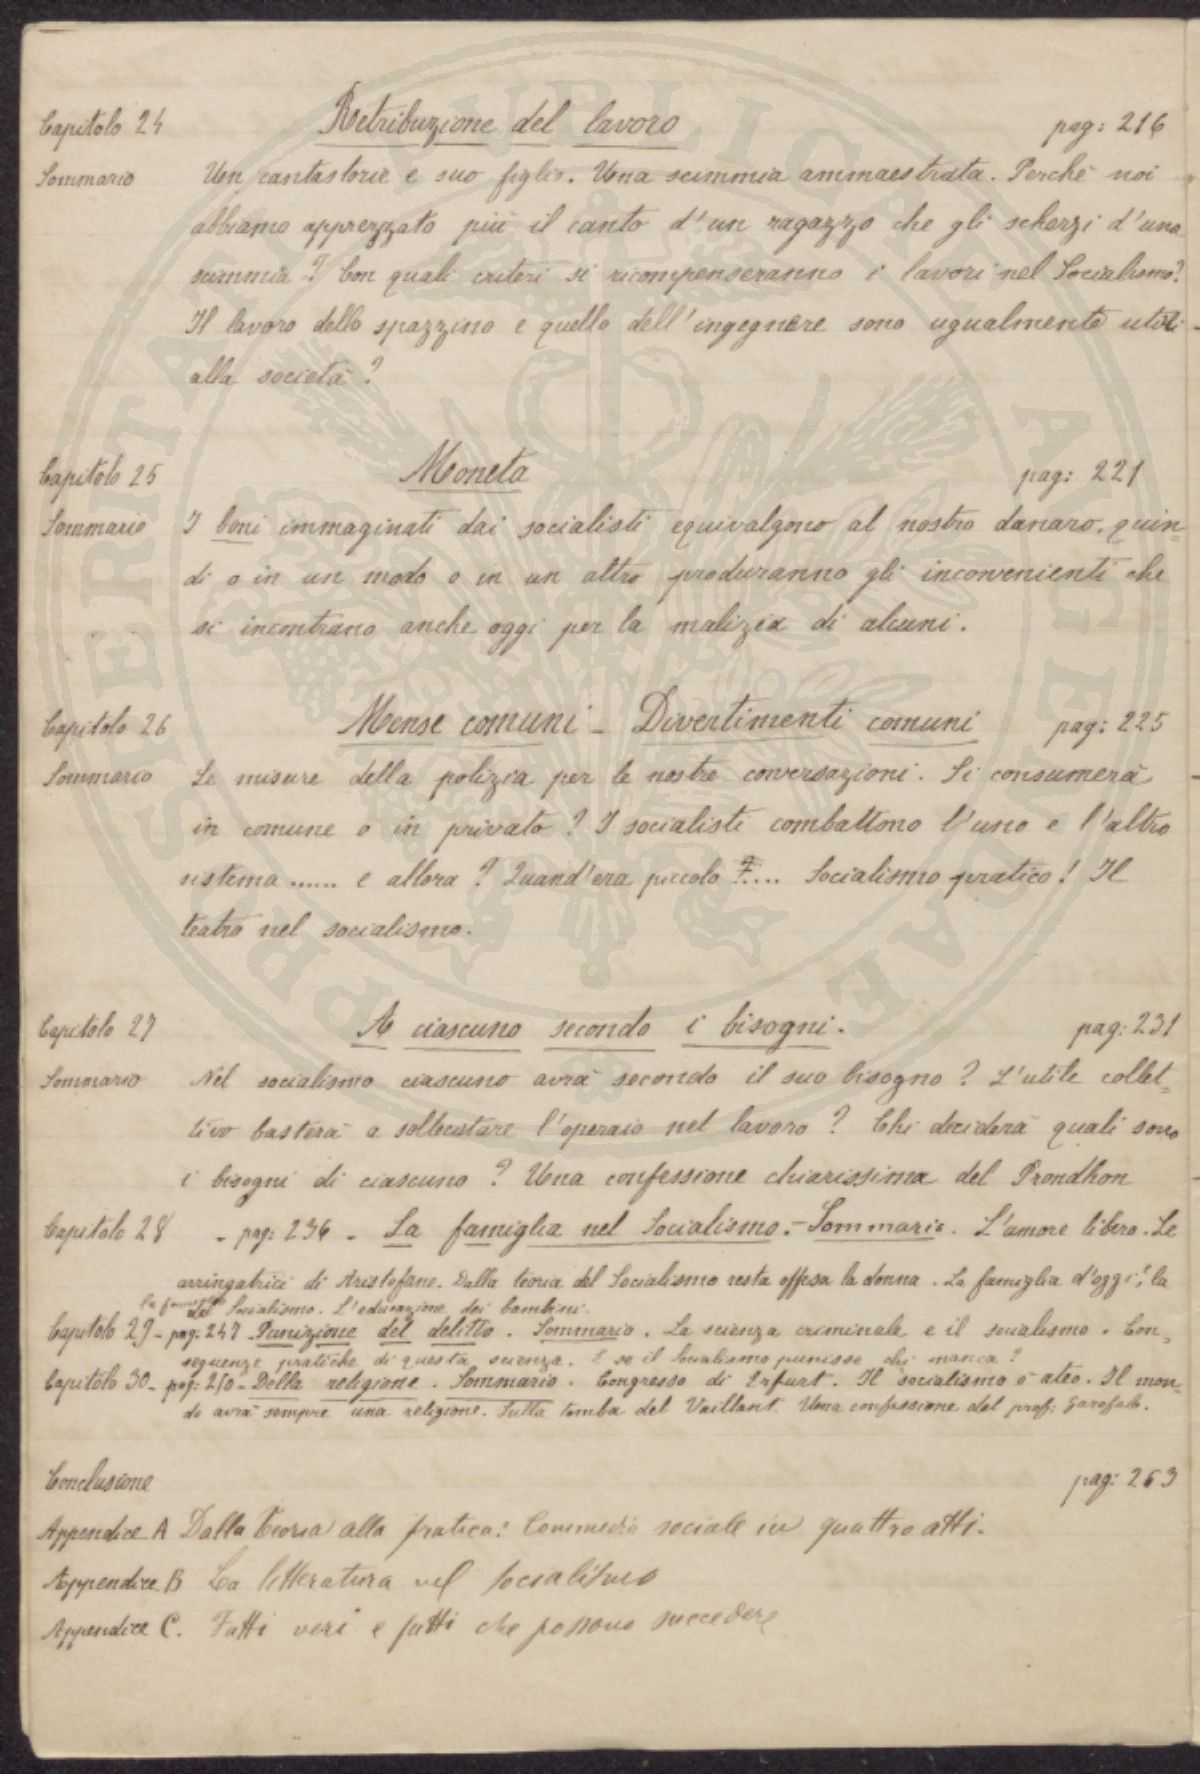 Capitolo 24 Retribuzione del lavoro pag: 216
Sommario Un cantastorie e suo figlio. Una scimmia ammaestrata. Perchè noi
abbiamo apprezzato più il canto d'un ragazzo che gli scherzi d'una
scimmia? Con quali criteri si ricompenseranno i lavori nel Socialismo?
Il lavoro dello spazzino e quello dell'ingegnere sono ugualmente utili
alla società?
Capitolo 25 Moneta pag: 221
Sommario I boni immaginati dai socialisti equivalgono al nostro danaro, quin=
di o in un modo o in un altro produranno gli inconvenienti che
si incontrano anche oggi per la malizia di alcuni.
Capitolo 26 Mense comuni - Divertimenti comuni pag: 225
Sommario Le misure della polizia per le nostre conversazioni. Si consumerà
in comune o in privato? I socialisti combattono l'uno e l'altro
sistema...... e allora? Quand'era piccolo ?.... Socialismo pratico! Il
teatro nel socialismo.
Capitolo 27 A ciascuno secondo i bisogni. pag: 231
Sommario Nel socialismo ciascuno avrà secondo il suo bisogno? L'utile collet=
tivo basterà a sollecitare l'operaio nel lavoro? Chi deciderà quali sono
i bisogni di ciascuno? Una confessione chiarissima del Prondhon
Capitolo 28 - pag: 236 - La famiglia nel Socialismo. - Sommario. L'amore libero. Le
arringatrici di Aristofane. Dalla teoria del Socialismo resta offesa la donna. La famiglia d'oggi; la
la famiglia del Socialismo. L'educazione dei bambini.
Capitolo 29 - pag: 247 Punizione del delitto. Sommario. La scienza criminale e il socialismo. Con=
seguenze pratiche di questa scienza. E se il Socialismo punisse chi manca?
Capitolo 30 - pag: 250 - Della religione. Sommario. Congresso di Erfurt. Il socialismo è ateo. Il mon=
do avrà sempre una religione. Sulla tomba del Vaillant. Una confessione del prof: Garofalo.
Conclusione pag: 263
Appendice A Dalla Teoria alla pratica: Commedia sociale in quattro atti.
Appendice B La letteratura nel socialismo
Appendice C. Fatti veri e fatti che possono succedere
PROSPERITATI PUBLICAE AUGENDAE